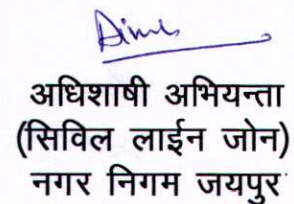 अधिशाषी अभियन्ता
(सिविल लाईन जोन)
नगर निगम जयपुर